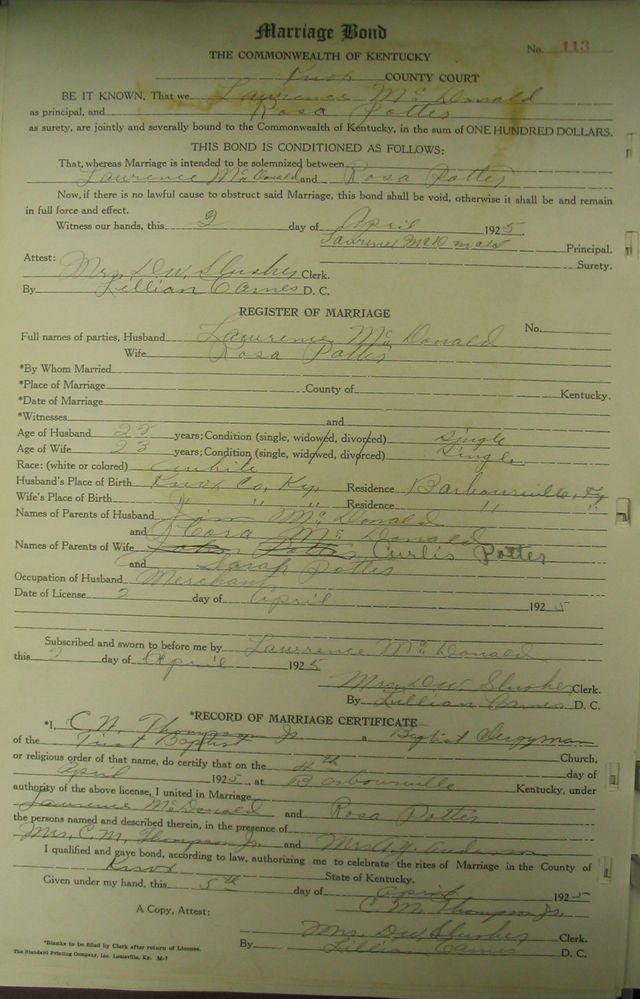 Marriage Bond
No. 113
THE COMMONWEALTH OF KENTUCKY
Knox COUNTY COURT
BE IT KNOWN, That we Lawrence McDonald
as principal, and Rosa Potter
as surety, are jointly and severally bound to the Commonwealth of Kentucky, in the sum of ONE HUNDRED DOLLARS.
THIS BOND IS CONDITIONED AS FOLLOWS:
That, whereas Marriage is intended to be solemnized between
Lawrence McDonald and Rosa Potter
Now, if there is no lawful cause to obstruct said Marriage, this bond shall be void, otherwise it shall be and remain
in full force and effect.
Witness our hands, this 2 day of April 1925
Lawrence McDonald Principal.
Surety.
Attest:
Mrs. D.W. Slusher Clerk.
By Lillian Carnes D. C.
REGISTER OF MARRIAGE
No.
Full names of parties, Husband Lawrence McDonald
Wife Rosa Potter
*By Whom Married
*Place of Marriage County of Kentucky.
*Date of Marriage
*Witnesses and
Age of Husband 28 years; Condition (single, widowed, divorced) Single
Age of Wife 23 years; Condition (single, widowed, divorced) Single
Race: (white or colored) white
Husband's Place of Birth Knox Co, Ky. Residence Barbourville, Ky
Wife's Place of Birth " " " Residence " "
Names of Parents of Husband Jim McDonald
and Cora McDonald
Names of Parents of Wife Potter Curtis Potter
and Sarah Potter
Occupation of Husband Merchant
Date of License 2 day of April 1925
Subscribed and sworn to before me by Lawrence McDonald
this 2 day of April 1925
Mrs. D.W. Slusher Clerk.
By Lillian Carnes D. C.
*RECORD OF MARRIAGE CERTIFICATE
*I, C.M. Thompson Jr. a Baptist Clergyman
of the First Baptist Church,
or religious order of that name, do certify that on the 4th day of
April 1925, at Barbourville Kentucky, under
authority of the above license, I united in Marriage
Lawrence McDonald and Rosa Potter
the persons named and described therein, in the presence of
Mrs. C.M. Thompson Jr. and Mrs. Anderson
I qualified and gave bond, according to law, authorizing me to celebrate the rites of Marriage in the County of
Knox State of Kentucky.
Given under my hand, this 5th day of April 1925
C.M. Thompson Jr.
A Copy, Attest:
Mrs. D.W. Slusher Clerk.
By Lillian Carnes D. C.
*Blanks to be filled by Clerk after return of License.
The Standard Printing Company, Inc. Louisville, Ky. M-7